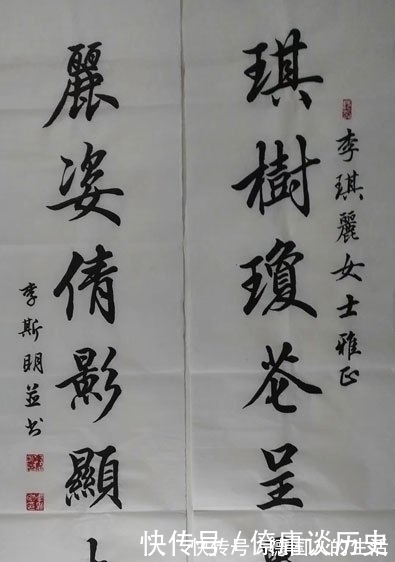 李琪麗女士雅正
琪樹瓊花呈
麗姿倩影顯
李斯明並书
快传号/康谈历史
快传号